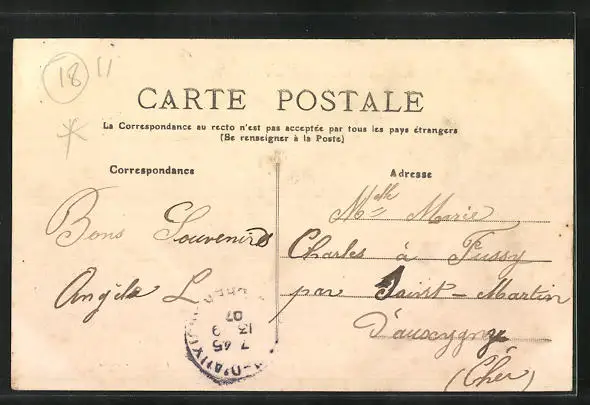 18
CARTE POSTALE
La Correspondance au recto n'est pas acceptée par tous les pays étrangers
(Se renseigner à la Poste)
Correspondance
Bons Souvenirs
Angèle L
Adresse
Mlle Marie
Charles à Fussy
par Saint-Martin
D'auxygny
(Cher)
7 45
13 9
07